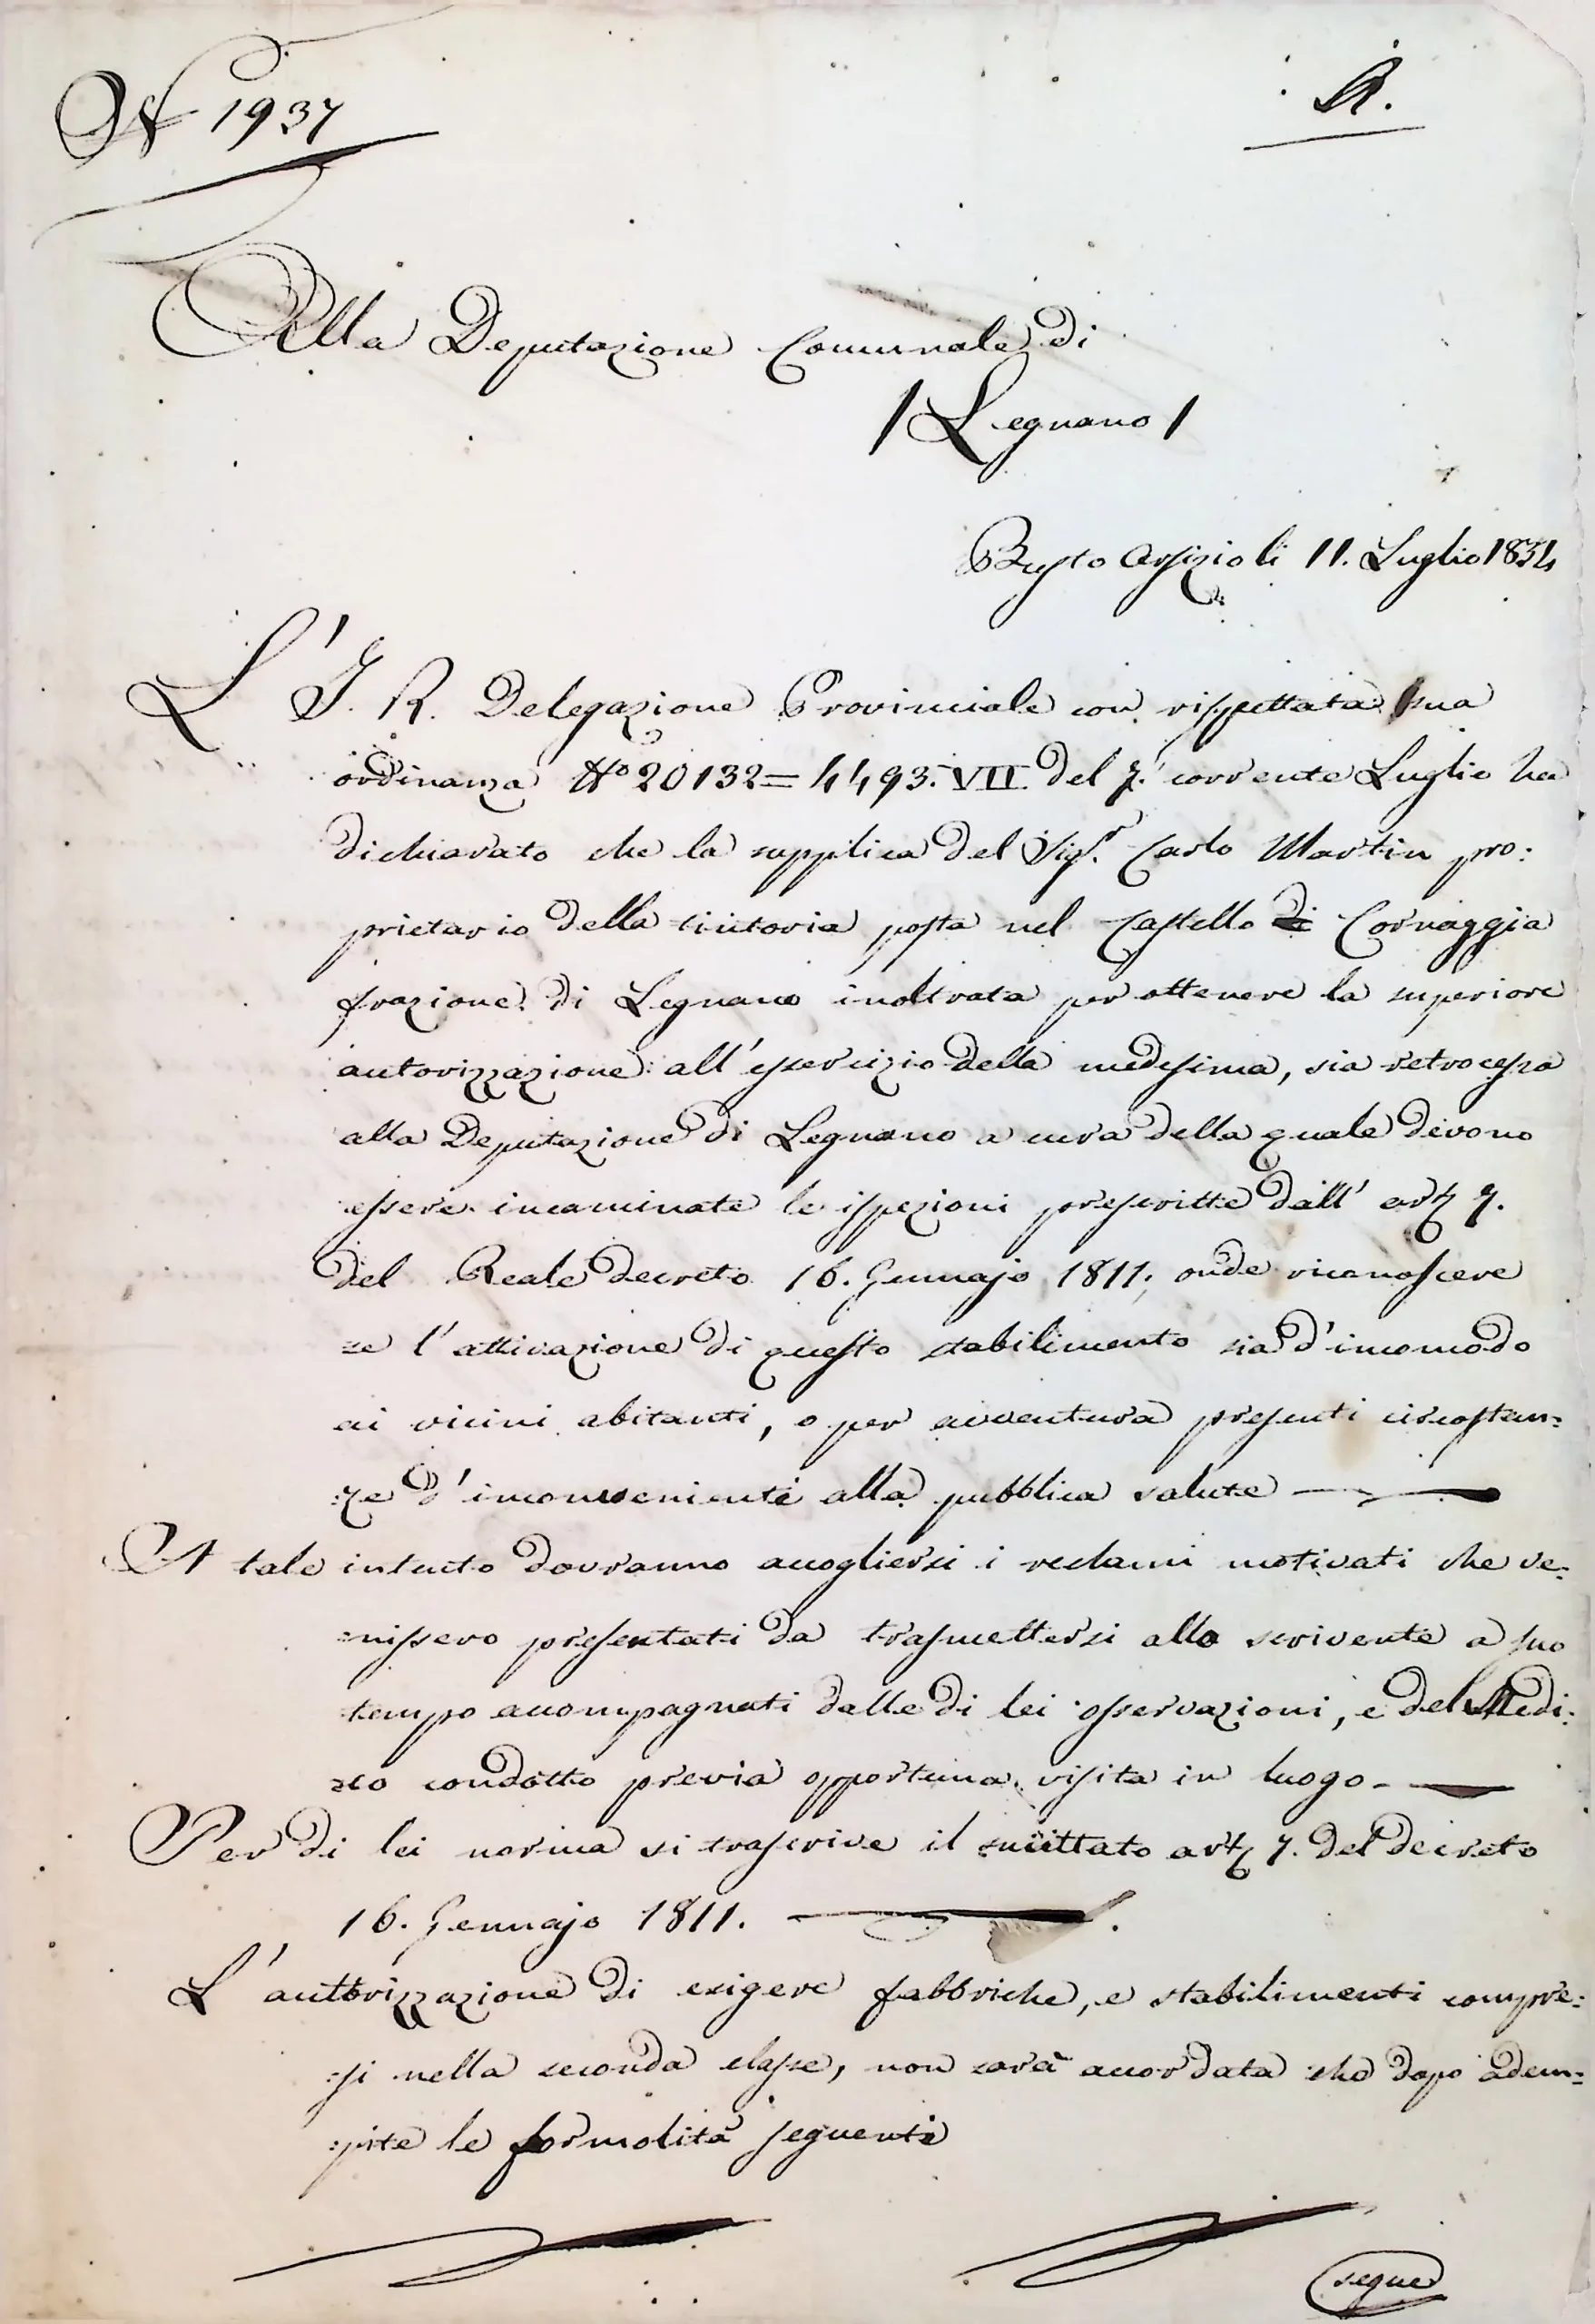 N 1937
A.
Alla Deputazione Comunale di
/ Legnano /
Busto Arsizio li 11. Luglio 1834
L' I. R. Delegazione Provinciale con rispettata sua
ordinanza N.o 20132=4493. VII. del 7. corrente Luglio ha
dichiarato che la supplica del Sig.r Carlo Martin pro:
prietario della tintoria posta nel Castello di Cornaggia
frazione di Legnano inoltrata per ottenere la superiore
autorizzazione all'essercizio della medesima, sia retrocessa
alla Deputazione di Legnano a cura della quale devono
essere incaminate le ispezioni prescritte dall' art. 7.
del Reale decreto 16. Gennajo 1811, onde riconoscere
se l'attivazione di questo stabilimento sia d'incomodo
ai vicini abitanti, o per avventura presenti circostan:
:ze d'inconvenienti alla pubblica salute
A tale intento dovranno accogliersi i reclami motivati che ve:
:nissero presentati da trasmettersi allo scrivente a suo
tempo accompagnati dalle di lei osservazioni, e del Medi:
:co condotto previa opportuna visita in luogo -
Per di lei norma si trascrive il sucittato art. 7. del decreto
16. Gennajo 1811.
L'auttorizzazione di erigere fabbriche, e stabilimenti compre:
:si nella seconda classe, non sarà accordata che dopo adem:
:pite le formolità seguenti
segue